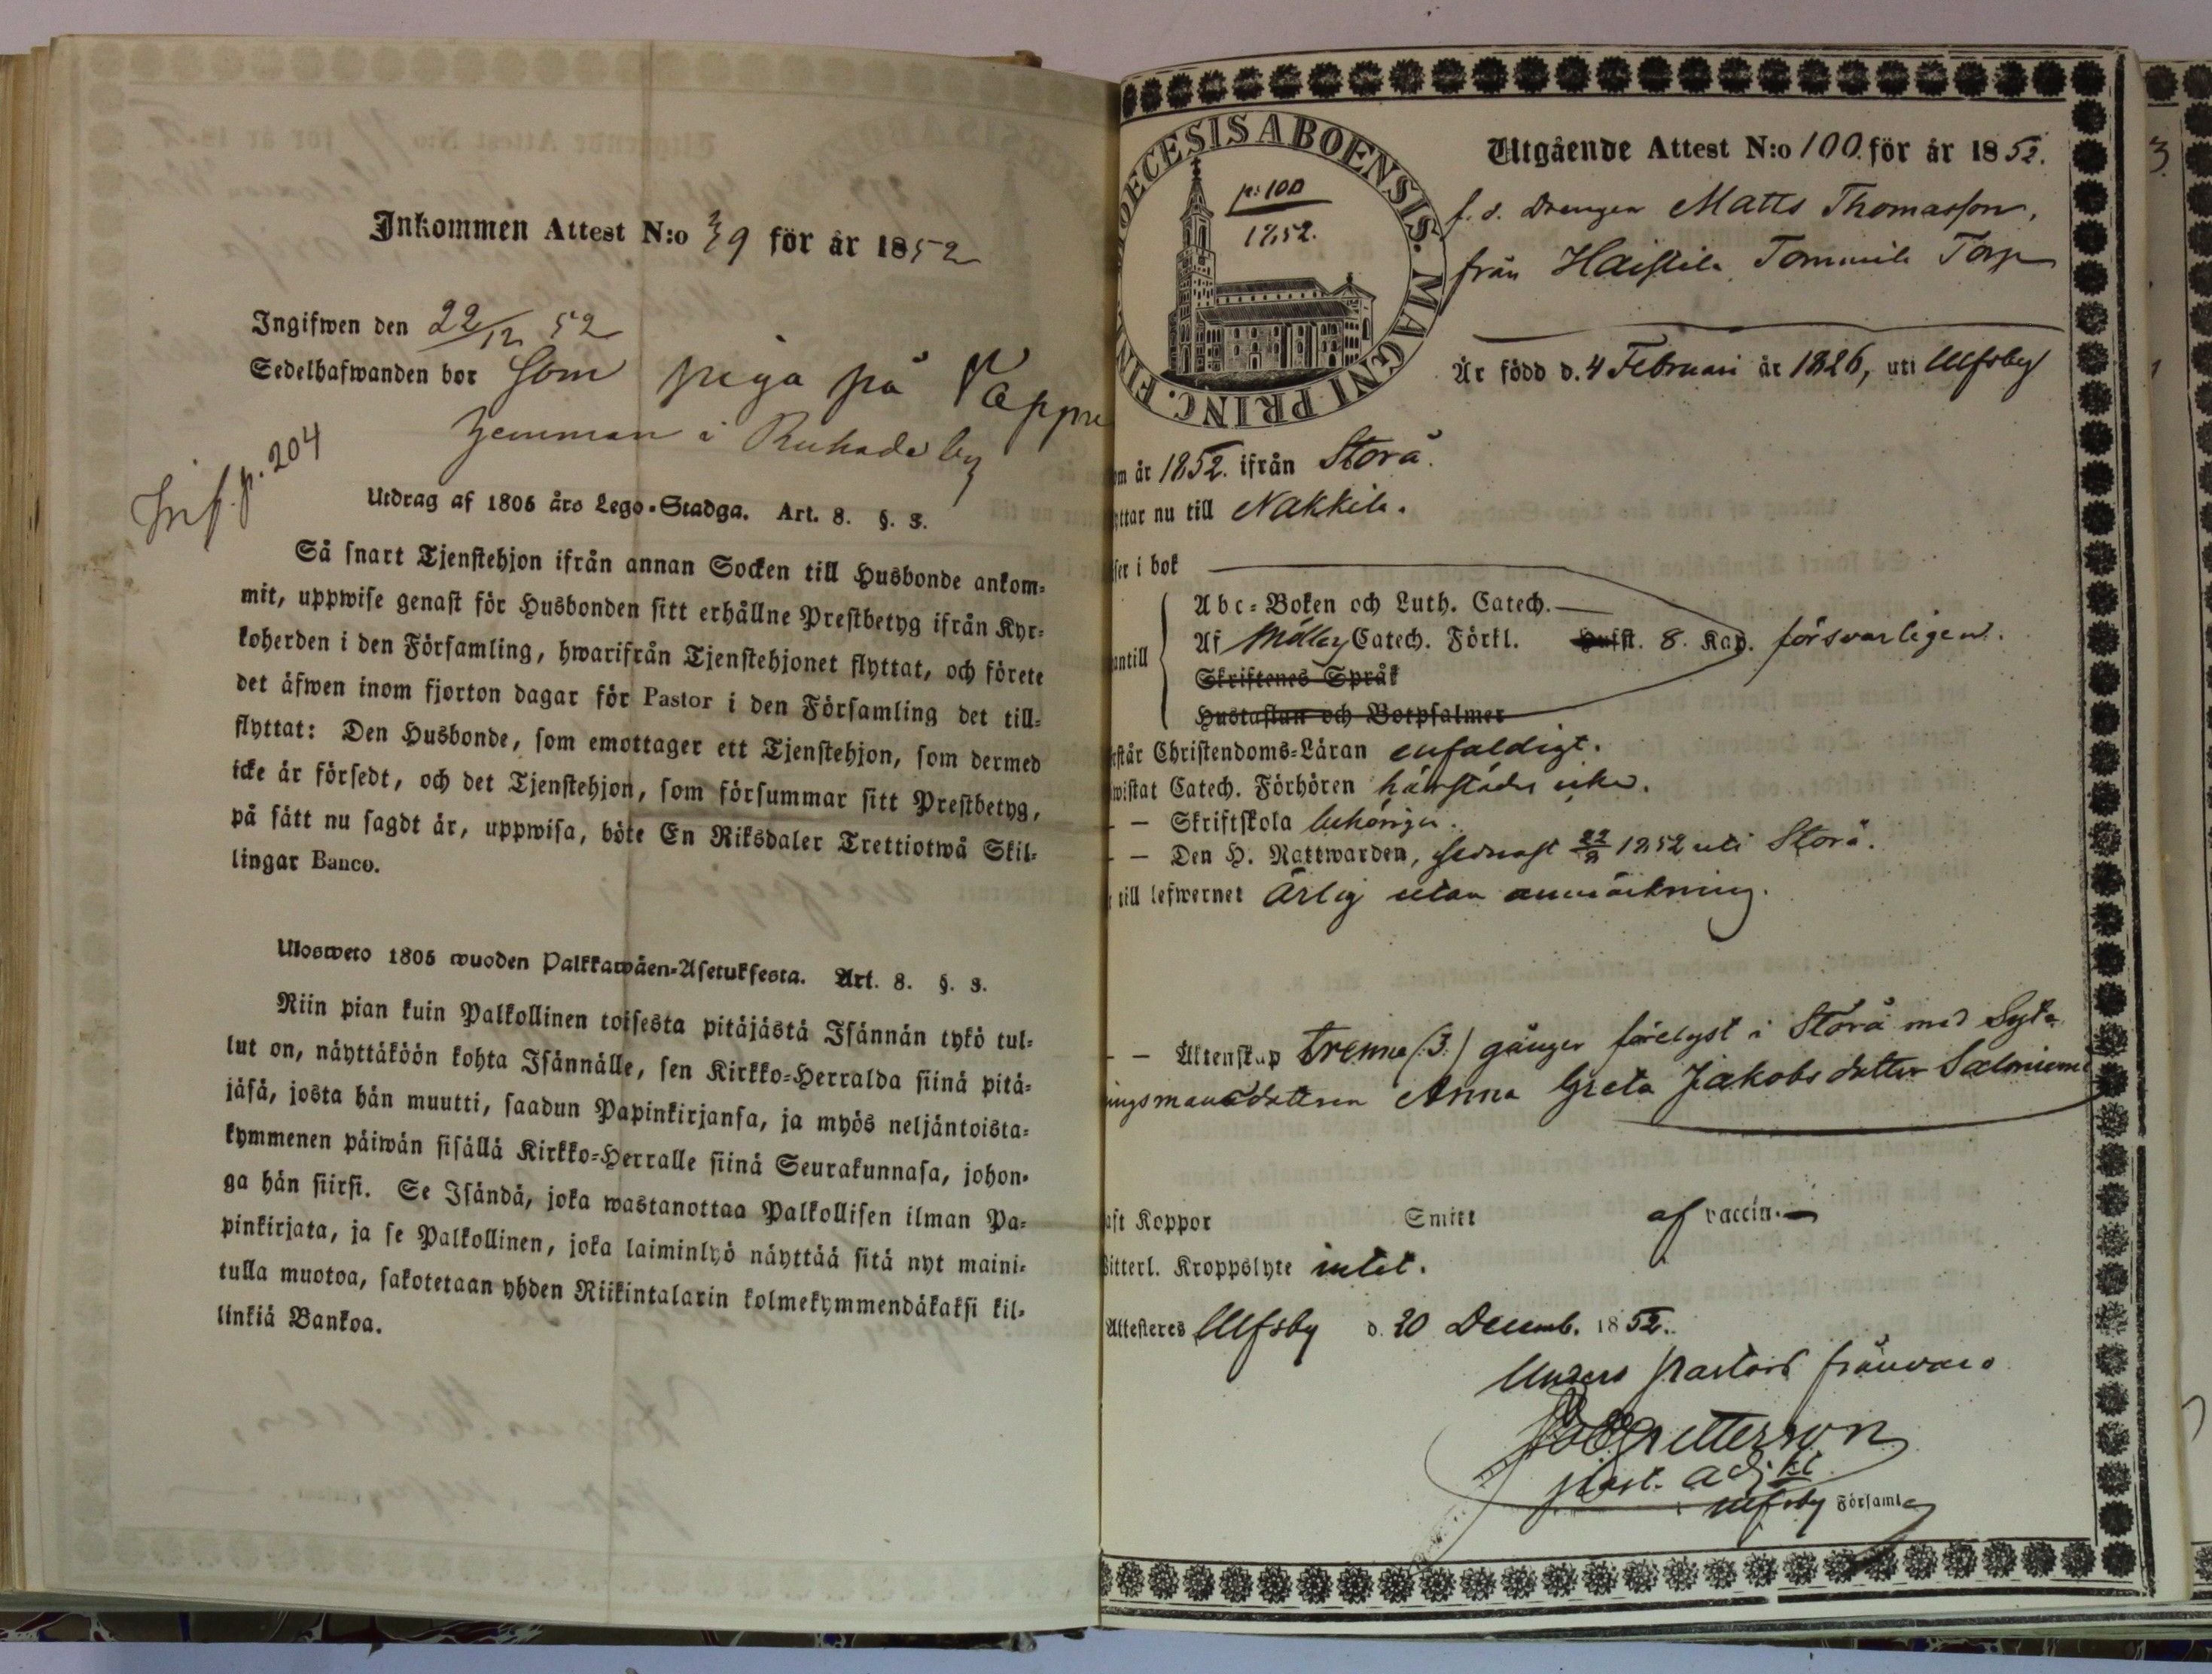 Inkommen Attest N:o 39 för år 1852
Ingifwen den 22/12 52
Sedelhafwanden bor som piga på
hemman i by
Inf. p. 204
Utdrag af 1805 års Lego-Stadga. Art. 8. §. 3.
Så snart Tjenstehjon ifrån annan Socken till Husbonde ankom-
mit, uppwise genast för Husbonden sitt erhållne Prestbetyg ifrån Kyr-
koherden i den Församling, hwarifrån Tjenstehjonet flyttat, och förete
det äfwen inom fjorton dagar för Pastor i den Församling det till-
flyttat: Den Husbonde, som emottager ett Tjenstehjon, som dermed
icke är försedt, och det Tjenstehjon, som försummar sitt Prestbetyg,
på sätt nu sagdt är, uppwisa, böte En Riksdaler Trettiotwå Skil-
lingar Banco.
Ulosweto 1805 wuoden Palkkawäen-Asetuksesta. Art. 8. §. 3.
Niin pian kuin Palkollinen toisesta pitäjästä Isännän tykö tul-
lut on, näyttäköön kohta Isännälle, sen Kirkko-Herralda siinä pitä-
jäsä, josta hän muutti, saadun Papinkirjansa, ja myös neljäntoista-
kymmenen päiwän sisällä Kirkko-Herralle siinä Seurakunnasa, johon-
ga hän siirsi. Se Isändä, joka wastanottaa Palkollisen ilman Pa-
pinkirjata, ja se Palkollinen, joka laiminlyö näyttää sitä nyt maini-
tulla muotoa, sakotetaan yhden Riikintalarin kolmekymmendäkaksi kil-
linkiä Bankoa.
DIOECESIS ABOENSIS. MAGNI PRINC. FIN
p: 100
1852.
Utgående Attest N:o 100. för år 1852.
f. d. Drengen Matts Thomasson,
från Haistila Tommila Torp
Är född d. 4 Februari år 1826, uti Ulfsby
om år 1852. ifrån Storå.
ttar nu till Nakkila.
ser i bok
antill
Abc-Boken och Luth. Catech.
Af Möllers Catech. Förkl. Hufst. 8. Kap. försvarligen.
Skriftenes Språk
Hustaflan och Botpsalmer
står Christendoms-Läran enfaldigt.
wistat Catech. Förhören härstädes icke.
— Skriftskola behörigen.
— Den H. Nattwarden, sednast 22/8 1852 uti Storå.
till lefwernet Ärlig utan anmärkning.
— Äktenskap trenne (3.) gånger förelyst i Storå med
ingsmansdottren Anna Greta Jakobsdotter Saloniemi
aft Koppor Smitt af vaccin.
Witterl. Kroppslyte intet.
Attesteres Ulfsby d. 20 Decemb. 1852.
Under pastors frånvaro
Petterson
past. adjkt
i Ulfsby Församl